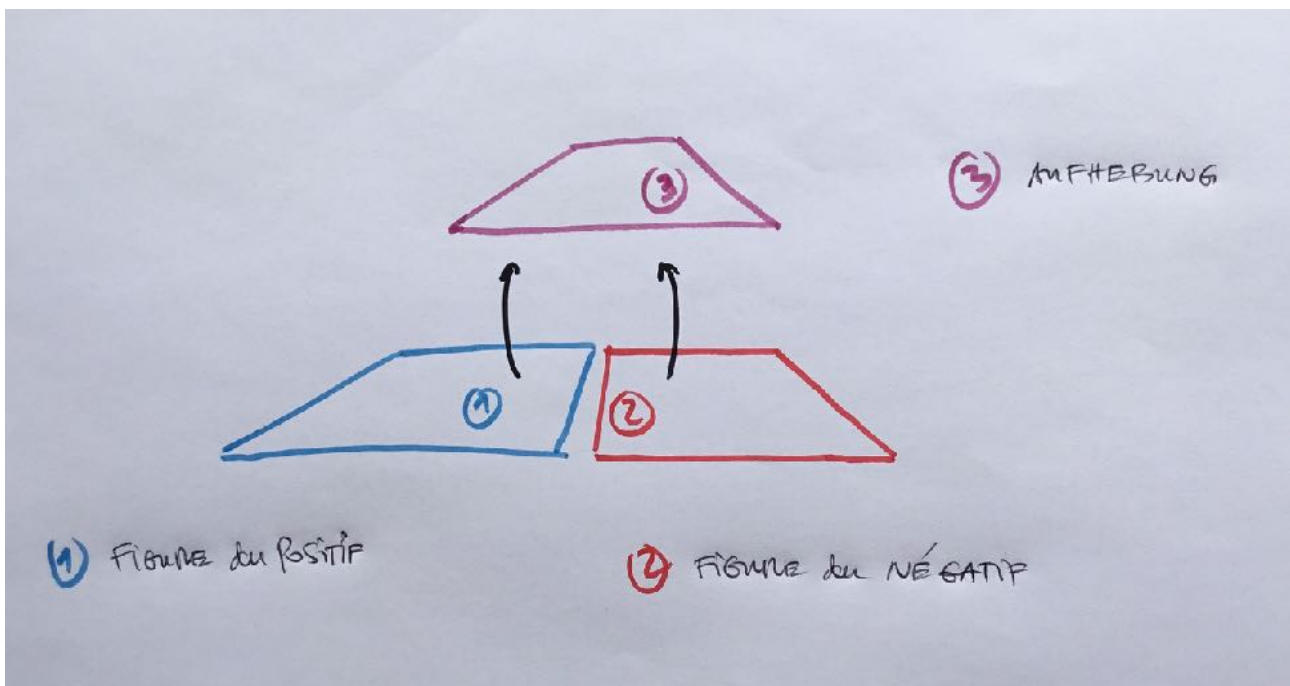 3
3 AUFHEBUNG
1
2
1 FIGURE du POSITIF
2 FIGURE du NÉGATIF